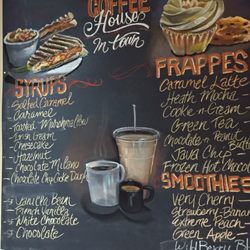 COFFEE
House
in town
SYRUPS
Salted Caramel
Caramel
Toasted Marshmallow
Irish Cream
Cheesecake
Hazelnut
Chocolate Milano
Chocolate Cup Cake
Vanilla Bean
French Vanilla
White Chocolate
Chocolate
FRAPPES
Caramel Latte
Heath Mocha
Cookie n Cream
Green Tea
Chocolate n Peanut
Java Chip
Frozen Hot Chocol
SMOOTHIES
Very Cherry
Strawberry-Bana
Extreme Peach
Green Apple
Wild Berry